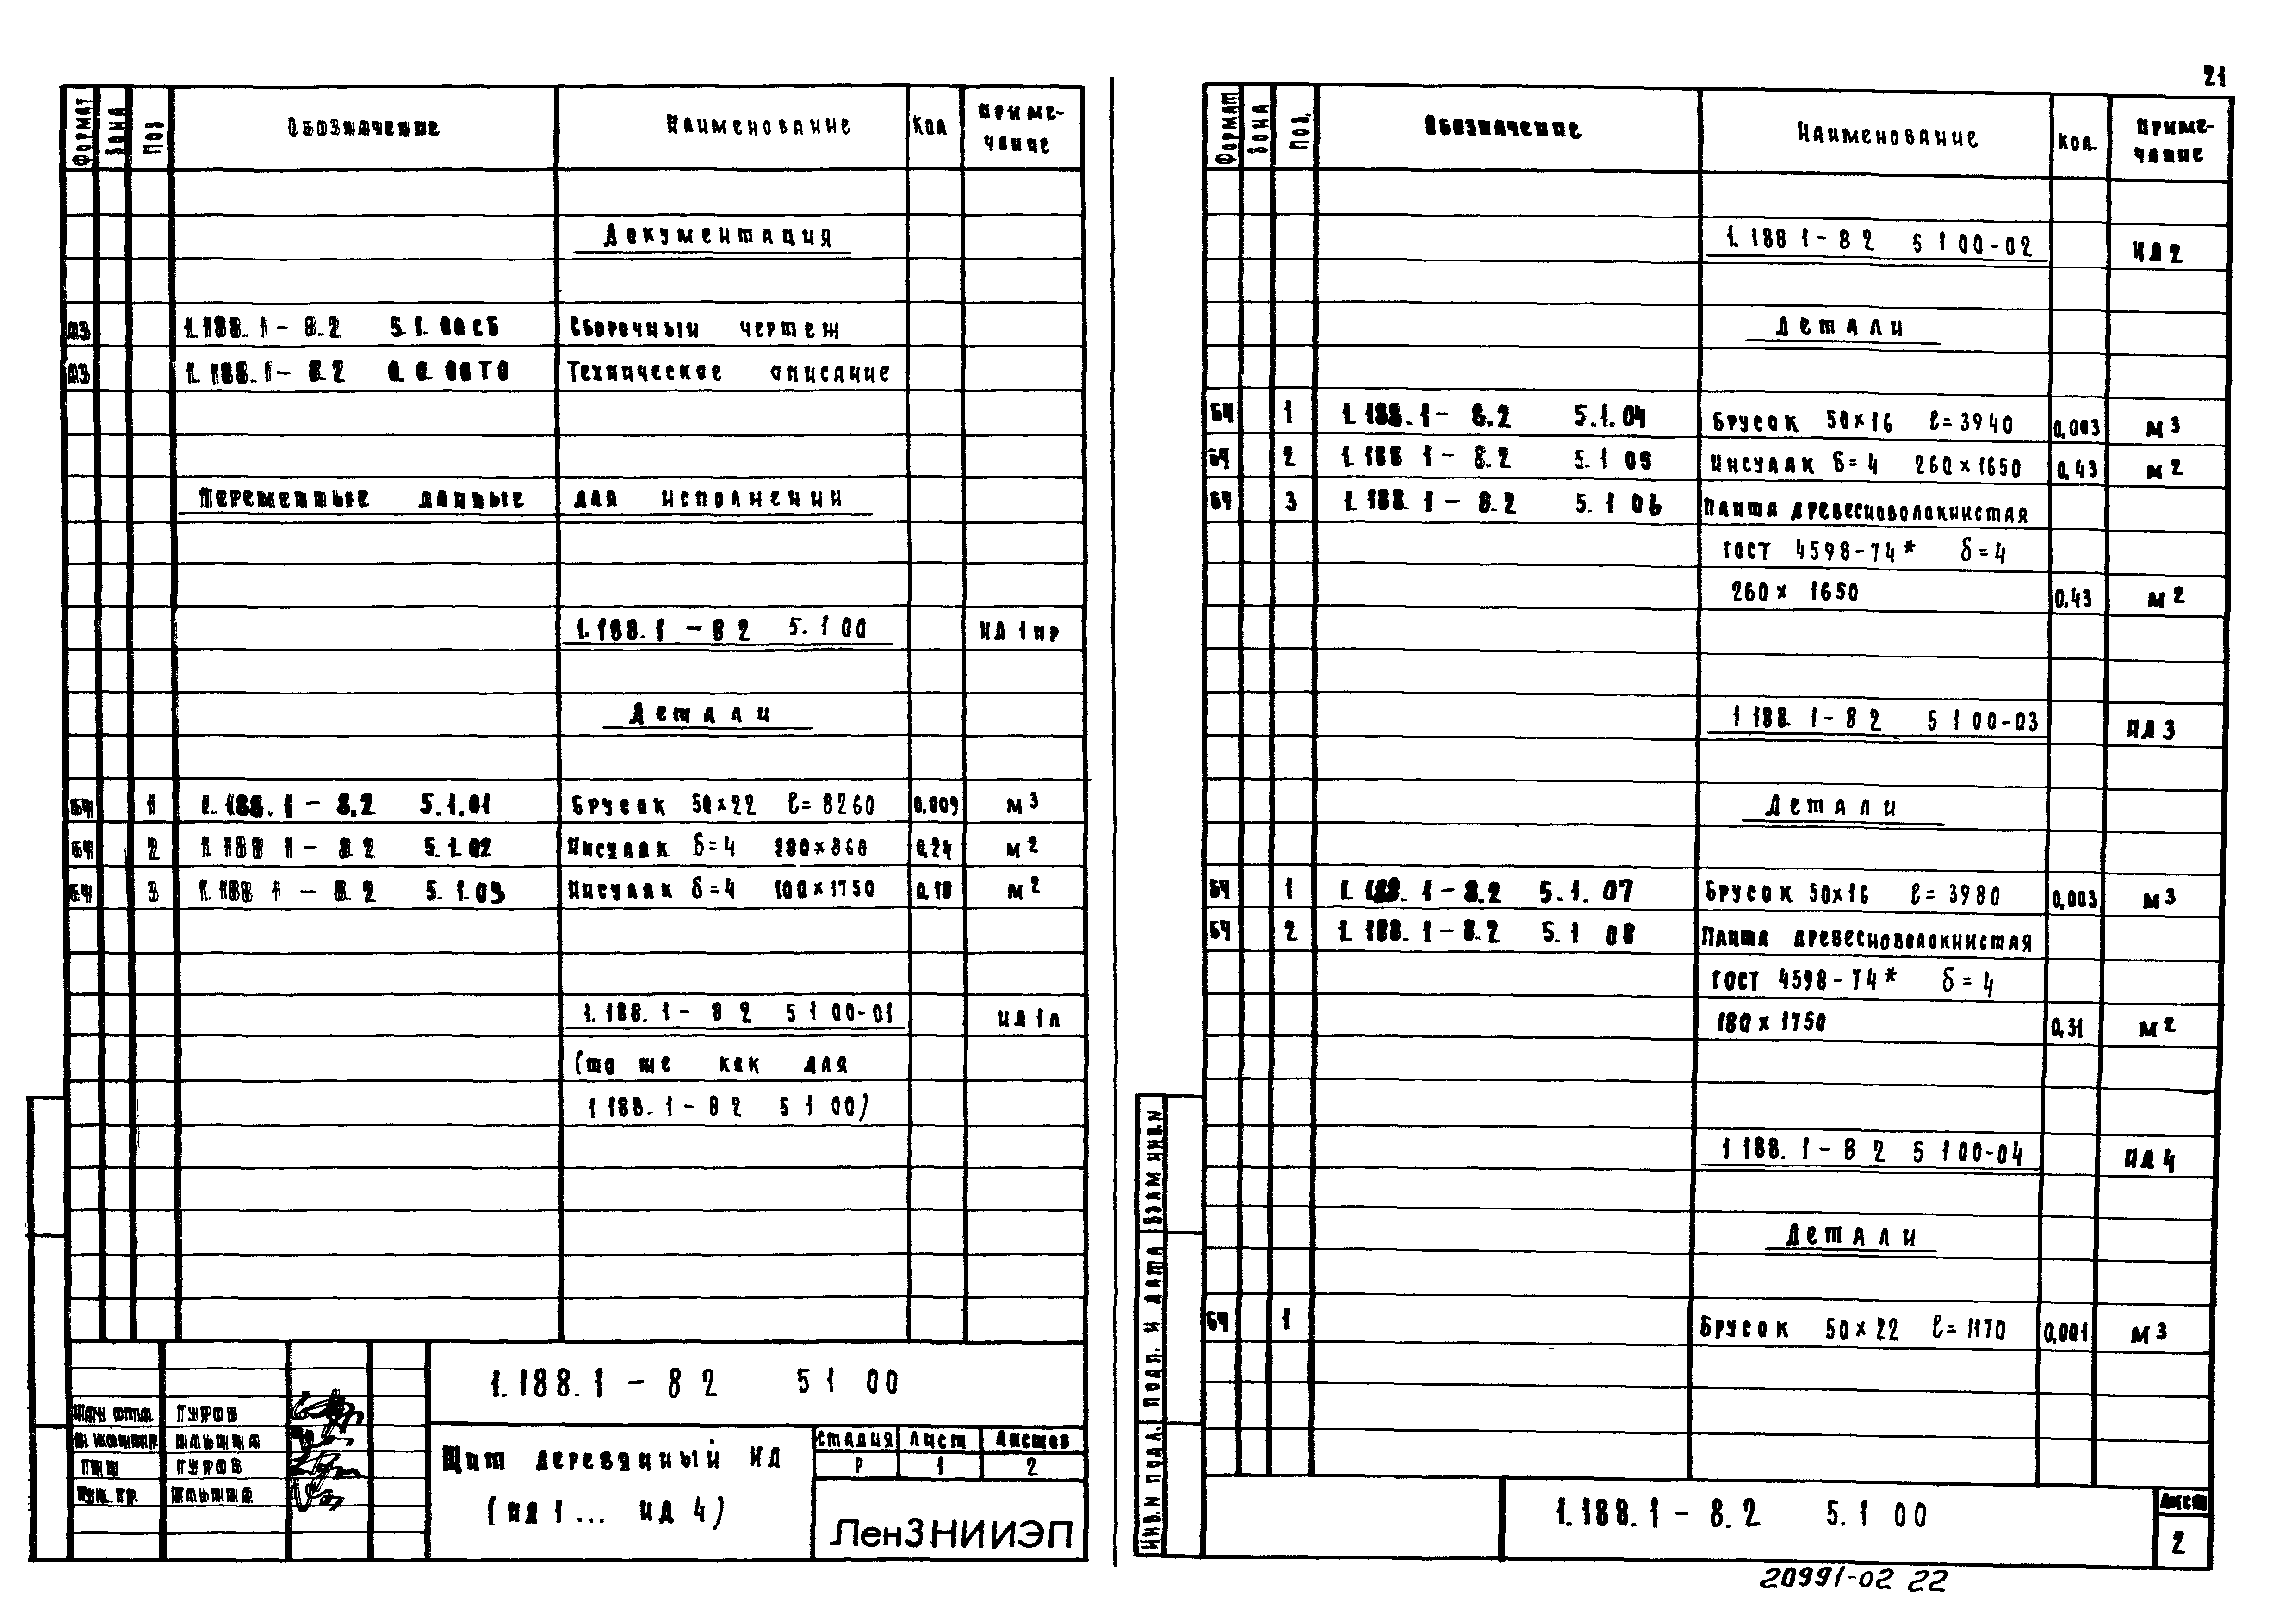 21
Формат Зона Поз Обозначение Наименование Кол Приме-
чание
Документация
А3 1.188.1-8.2 5.1.00СБ Сборочный чертеж
А3 1.188.1-8.2 0.0.00ТО Техническое описание
Переменные данные для исполнений
1.188.1-8 2 5.1 00 ИД 1пр
Детали
БЧ 1 1.188.1-8.2 5.1.01 Брусок 50×22 ℓ=8260 0.009 м3
БЧ 2 1 188 1-8.2 5.1.02 Инсулак δ=4 280×860 0,24 м2
БЧ 3 1.188 1-8.2 5.1.03 Инсулак δ=4 100×1750 0,18 м2
1.188.1-8 2 5 1 00-01 ИД 1л
(то же как для
1 188.1-8 2 5 1 00)
1.188.1-8 2 5 1 00
Нач. отд. Гуров
Н. контр. Ильина
ГИП Гуров
Рук. гр. Ильина
Щит деревянный ИД
(ИД 1... ИД 4)
Стадия Лист Листов
Р 1 2
ЛенЗНИИЭП
Формат Зона Поз. Обозначение Наименование Кол. Приме-
чание
1.188 1-8 2 5 1 00-02 ИД 2
Детали
БЧ 1 1.188.1-8.2 5.1.04 Брусок 50×16 ℓ=3940 0,003 м3
БЧ 2 1.188 1-8.2 5.1 05 Инсулак δ=4 260×1650 0,43 м2
БЧ 3 1.188.1-8.2 5.1 06 Плита древесноволокнистая
ГОСТ 4598-74* δ=4
260× 1650 0.43 м2
1 188.1-8 2 5 1 00-03 ИД 3
Детали
БЧ 1 1.188.1-8.2 5.1.07 Брусок 50×16 ℓ=3980 0,003 м3
БЧ 2 1.188.1-8.2 5.1 08 Плита древесноволокнистая
ГОСТ 4598-74* δ=4
180×1750 0,31 м2
1 188.1-8 2 5 1 00-04 ИД 4
Детали
БЧ 1 Брусок 50×22 ℓ=1170 0,001 м3
Инв.N подл. Подп. и дата Взам инв.N
1.188.1-8.2 5.1 00
Лист
2
20991-02 22